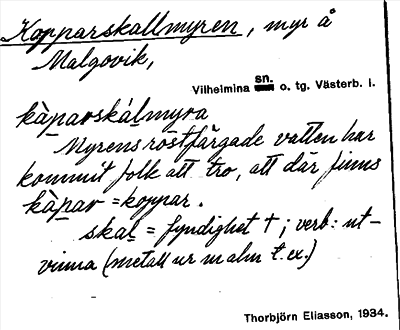 Kopparskallmyren, myr å
Malgovik,
Vilhelmina sn. o. tg. Västerb. l.
kàparskálmyra
Myrens röstfärgade vatten har
kommit folk att tro, att där finns
kàpar = koppar.
skal = fyndighet †; verb: ut-
vinna (metall ur malm t. ex.)
Thorbjörn Eliasson, 1934.